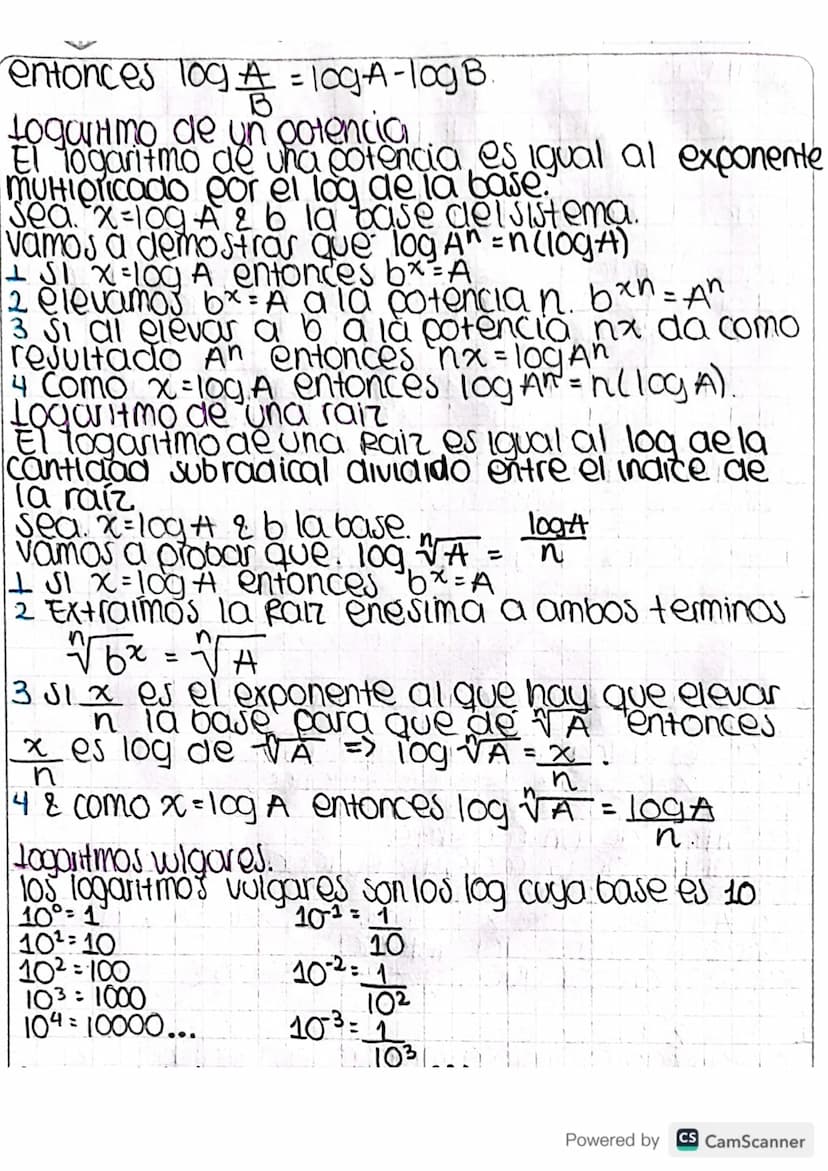 entonces log A/B = log A - log B.
Logaritmo de un potencia
El logaritmo de una potencia es igual al exponente
multiplicado por el log de la base.
Sea. x=log A & b la base del sistema.
Vamos a demostrar que log Aⁿ = n(log A)
1 Si x=log A entonces bˣ=A
2 elevamos bˣ=A a la potencia n. bˣⁿ=Aⁿ
3 Si al elevar a b a la potencia nx da como
resultado Aⁿ entonces nx=log Aⁿ
4 Como x=log A entonces log Aⁿ=n(log A).
Logaritmo de una raiz
El logaritmo de una Raiz es igual al log de la
cantidad subradical dividido entre el indice de
la raíz
Sea. x=log A & b la base.
Vamos a probar que. log ⁿ√A = log A/n
1 Si x=log A entonces bˣ=A
2 Extraímos la Raiz enesima a ambos terminos
ⁿ√bˣ = ⁿ√A
3 Si x/n es el exponente al que hay que elevar
la base para que de ⁿ√A entonces
x/n es log de ⁿ√A => log ⁿ√A = x/n.
4 & como x=log A entonces log ⁿ√A = log A/n
Logaritmos vulgares.
los logaritmos vulgares son los log cuya base es 10
10⁰=1 10⁻¹=1/10
10¹=10
10²=100 10⁻²=1/10²
10³=1000
10⁴=10000... 10⁻³=1/10³...
Powered by CS CamScanner